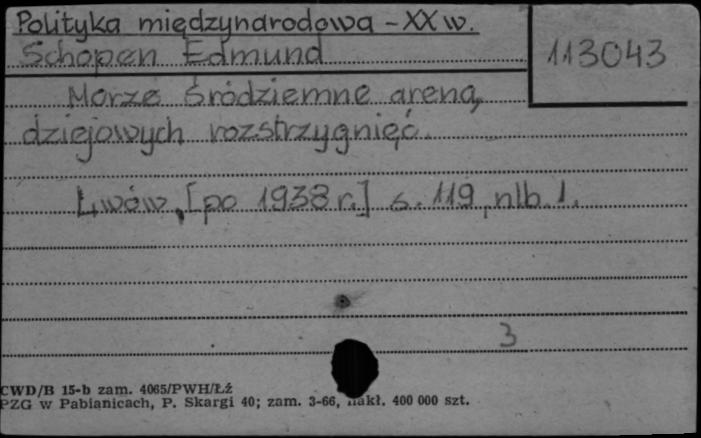 Polityka międzynarodowa - XX w.
Schopen Edmund
113043
Morze Śródziemne areną
dziejowych rozstrzygnięć.
Lwów, [po 1938 r.] s. 119, nlb. 1.
3
CWD/B 15-b zam. 4065/PWH/Łź
PZG w Pabianicach, P. Skargi 40; zam. 3-66, nakł. 400 000 szt.